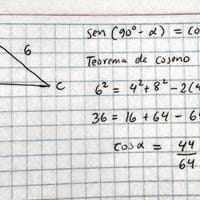 6
C
sen (90°-α) = co
Teorema de coseno
6² = 4² + 8² - 2(4
36 = 16 + 64 - 64
cosα = 44/64